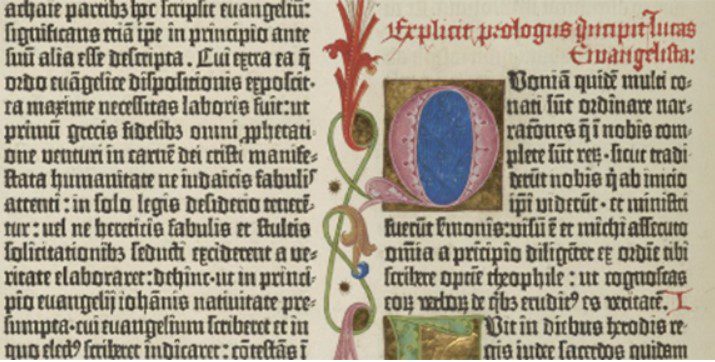 achaie partibꝫ hoc scripsit euangeliū:
significans etiā ip̄e in principio ante
suū alia esse descripta. Cui extra ea q̄
ordo euāgelice dispositionis exposcit·
ea maxime necessitas laboris fuit: ut
primū grecis fidelibꝫ omni ꝓphetati-
one venturi in carnē dei cristi manife-
stata humanitate ne iudaicis fabulis
attenti: in solo legis desiderio tenerē-
tur: uel ne hereticis fabulis et stultis
solicitationibꝫ seducti exciderent a ve-
ritate elaboraret: dehinc· ut in princi-
pio euangelij iohānis natiuitate pre-
sumpta· cui euangelium scriberet et in
quo electꝰ scriberet indicaret: cōtestās ī
Explicit prologus Incipit Lucas
Ewangelista:
Quoniā quidē multi co-
nati sūt ordinare nar-
rationes q̄ ī nobis com-
plete sūt reꝝ· sicut tradi-
derūt nobis q̇ ab inicio
ip̄i viderūt· et ministri
fuerūt sermonis: visū ē et michi assecuto
omīa a pricipio diligēter ex ordīe tibi
scribere optīe theophile: ut cognoscas
eoꝝ verboꝝ de q̇bꝫ eruditꝰ es veritatē. I
Fuit in diebus herodis re-
gis iude sacerdos quidam